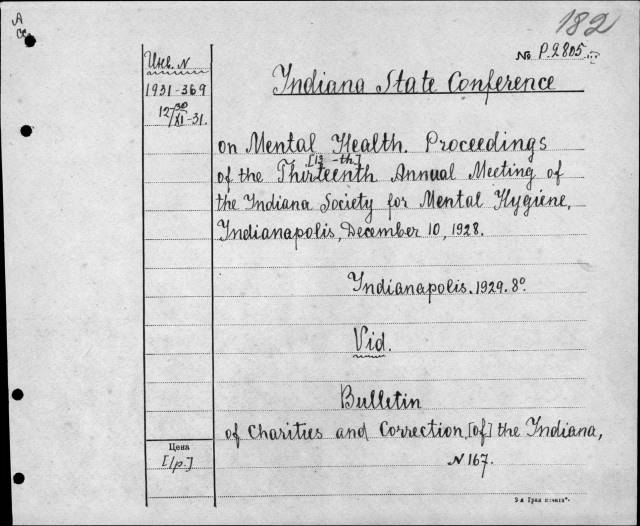 182
№ P.2805
Инв. N
Indiana State Conference
1931-369
on Mental Health. Proceedings
[13-th]
of the Thirteenth Annual Meeting of
the Indiana Society for Mental Hygiene,
Indianapolis, December 10, 1928.
Indianapolis. 1929. 8°.
Vid.
Bulletin
of Charities and Correction, [of] the Indiana,
N 167.
Цена
[1р.]